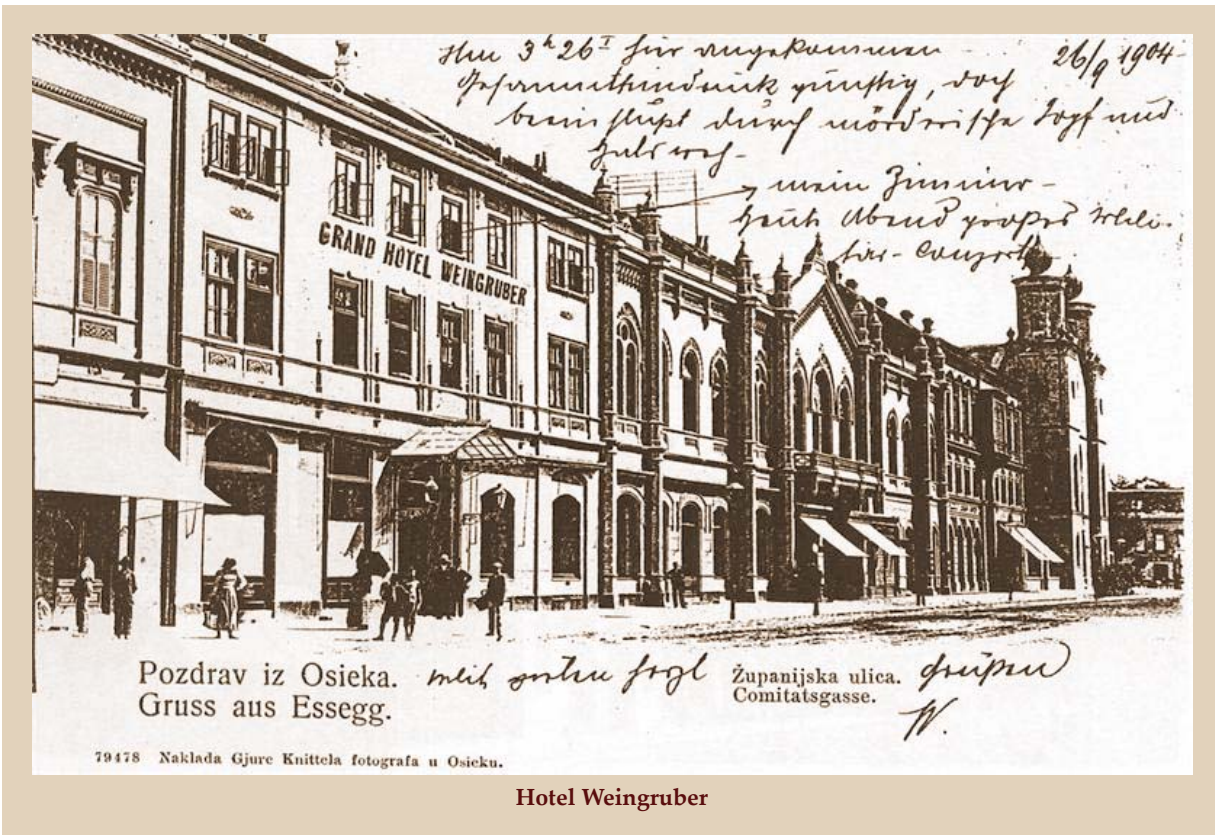 Um 3ʰ 26ᴵ hier angekommen
26/9 1904 -
Gesammteindruck günstig, doch
beeinflußt durch mörderische Kopf und
Halsweh -
mein Zimmer -
Heute Abend großes Mili-
tär-Conzert
GRAND HOTEL WEINGRUBER
Pozdrav iz Osieka.
Gruss aus Essegg.
mit herzl
Županijska ulica.
Comitatsgasse.
Grüßen
W.
79478 Naklada Gjure Knittela fotografa u Osieku.
Hotel Weingruber